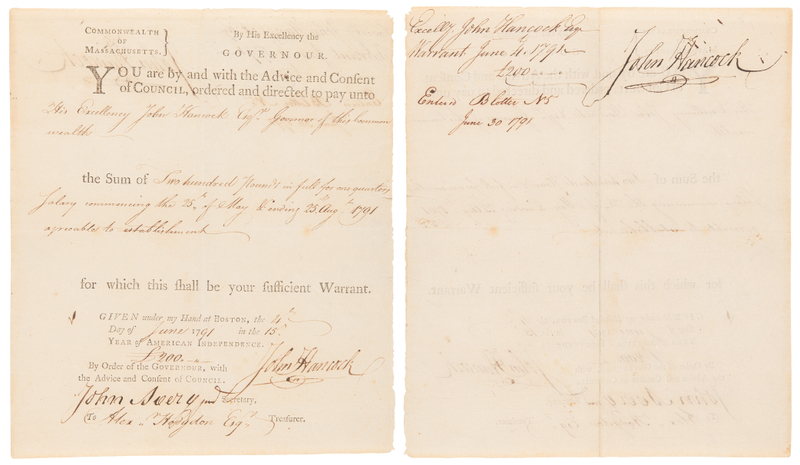 COMMONWEALTH
OF
MASSACHUSETTS.
By His Excellency the
GOVERNOUR.
YOU are by and with the Advice and Consent
of COUNCIL, ordered and directed to pay unto
His Excellency John Hancock Esqr. Governor of this Common
wealth
the Sum of Two hundred pounds in full for one quarters
Salary commencing the 25th of May & ending 25th Augt 1791
agreeable to establishment
for which this shall be your sufficient Warrant.
GIVEN under my Hand at BOSTON, the 4th
Day of June 1791 in the 15th
YEAR of AMERICAN INDEPENDENCE.
£200
By Order of the GOVERNOUR, with
the Advice and Consent of COUNCIL.
John Hancock
John Avery junr Secretary.
To Alexr Hodgdon Esqr Treasurer.
Excelly John Hancock Esqr
Warrant June 4. 1791
£200
Enterd Blotter No 5
June 30 1791
John Hancock